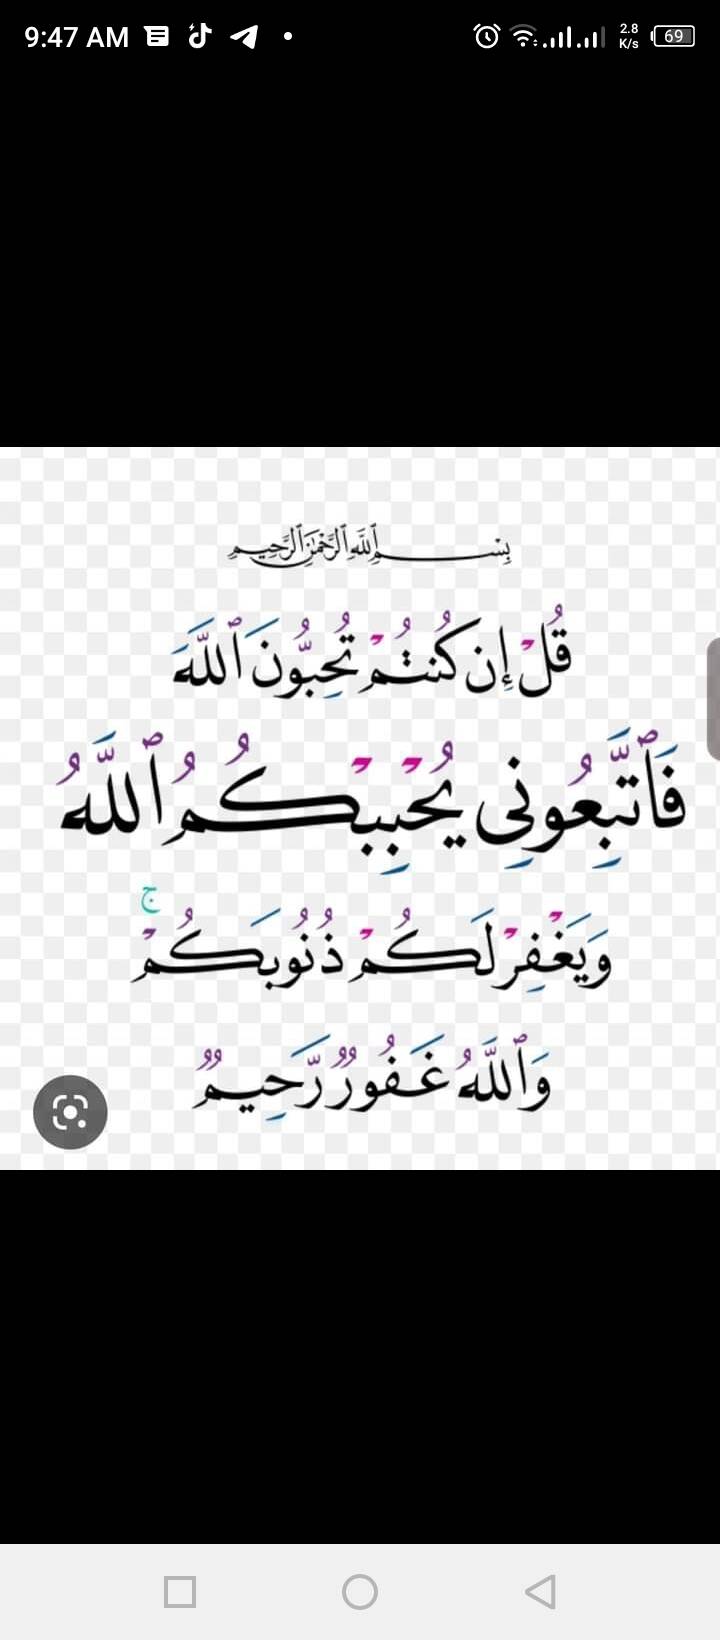 9:47 AM 2.8 K/s 69
بِسْمِ ٱللَّهِ ٱلرَّحْمَٰنِ ٱلرَّحِيمِ
قُلْ إِن كُنتُمْ تُحِبُّونَ ٱللَّهَ
فَٱتَّبِعُونِى يُحْبِبْكُمُ ٱللَّهُ
وَيَغْفِرْ لَكُمْ ذُنُوبَكُمْ ۚ
وَٱللَّهُ غَفُورٌ رَّحِيمٌ